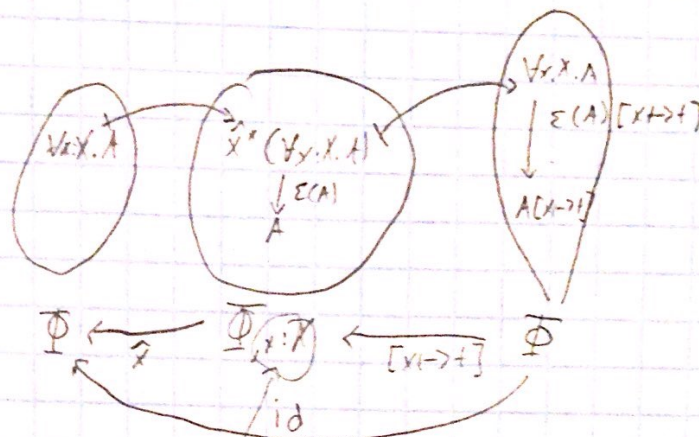 ∀x:X.A
x̂*(∀x:X.A)
↓ ε(A)
A
∀x:X.A
↓ ε(A)[x↦t]
A[x↦t]
Φ ← Φ, x:X ← Φ
x̂ [x↦t]
id